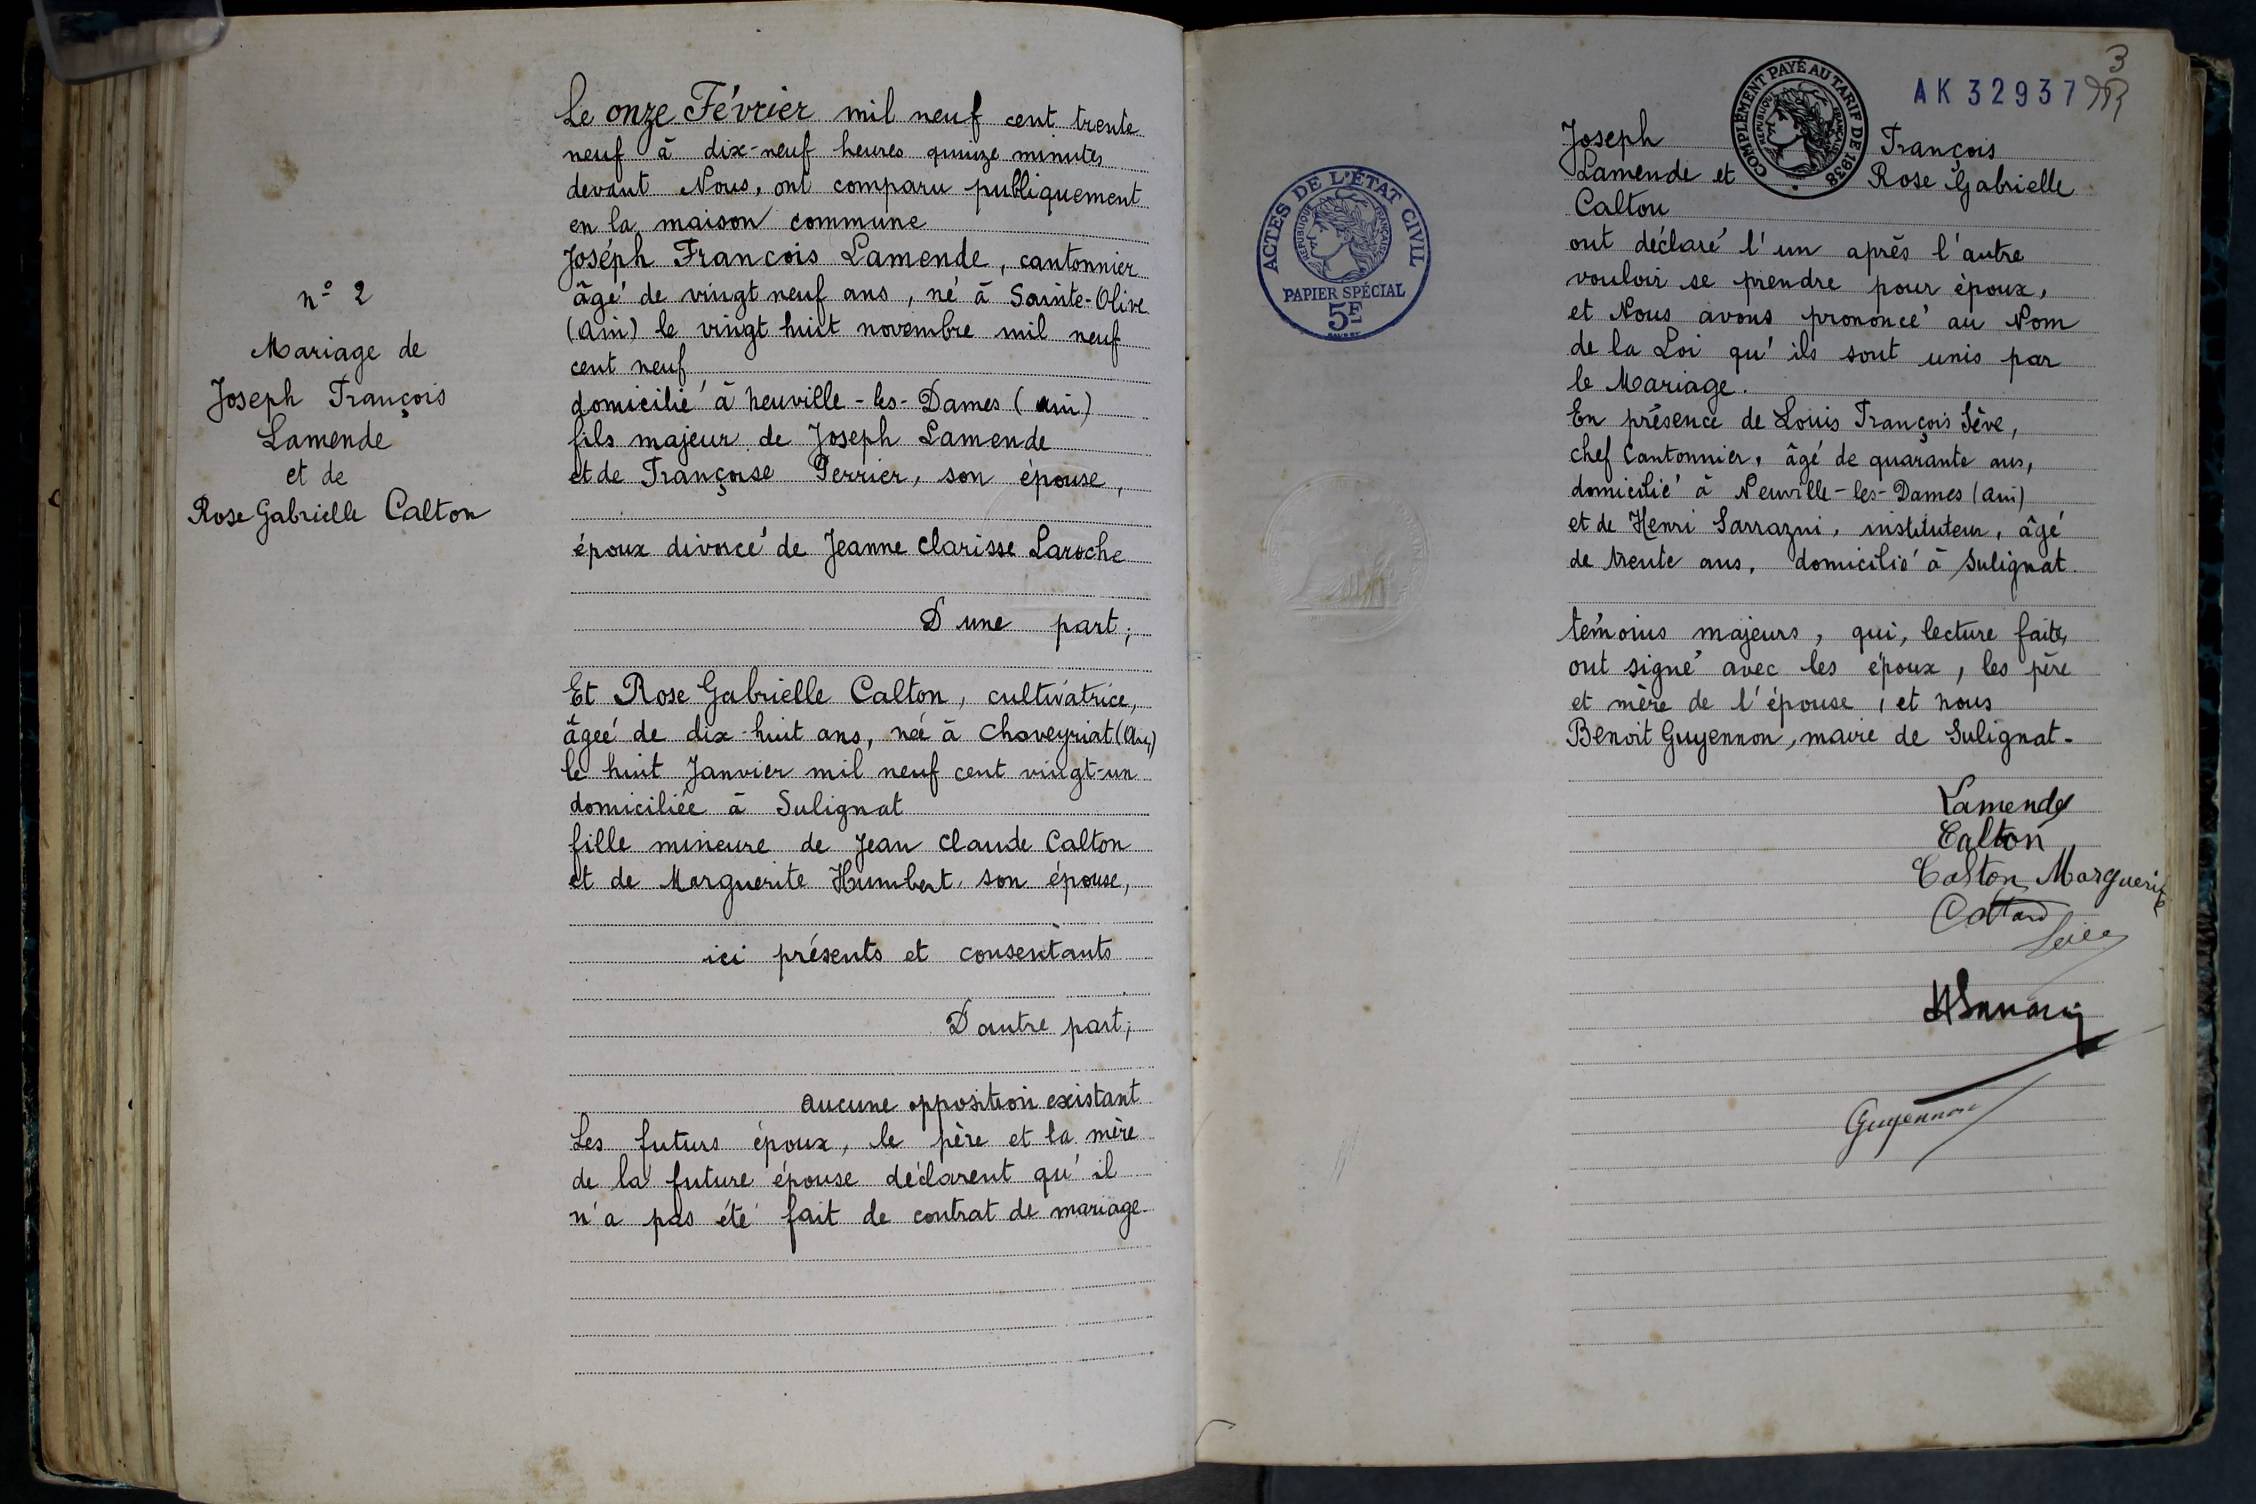 n° 2
Mariage de
Joseph François
Lamende
et de
Rose Gabrielle Calton
Le onze Février mil neuf cent trente
neuf à dix-neuf heures quinze minutes
devant Nous, ont comparu publiquement
en la maison commune
Joséph Francois Lamende, cantonnier
âgé de vingt neuf ans, né à Sainte-Olive
(Ain) le vingt huit novembre mil neuf
cent neuf
domicilié à Neuville-les-Dames (Ain)
fils majeur de Joseph Lamende
et de Françoise Perrier, son épouse,
époux divorcé de Jeanne Clarisse Laroche
D'une part;
Et Rose Gabrielle Calton, cultivatrice,
âgée de dix-huit ans, née à Chaveyriat (Ain)
le huit Janvier mil neuf cent vingt-un
domiciliée à Sulignat
fille mineure de Jean Claude Calton
et de Marguerite Humbert, son épouse,
ici présents et consentants
D'autre part;
aucune opposition existant
Les futurs époux, le père et la mère
de la future épouse déclarent qu'il
n'a pas été fait de contrat de mariage.
3
AK 32937
COMPLÉMENT PAYÉ AU TARIF DE 1938
RÉPUBLIQUE FRANÇAISE
ACTES DE L'ÉTAT CIVIL
RÉPUBLIQUE FRANÇAISE
PAPIER SPÉCIAL
5F
Joseph François
Lamende et Rose Gabrielle
Calton
ont déclaré l'un après l'autre
vouloir se prendre pour époux,
et Nous avons prononcé au Nom
de la Loi qu'ils sont unis par
le Mariage.
En présence de Louis François Sève,
chef Cantonnier, âgé de quarante ans,
domicilié à Neuville-les-Dames (Ain)
et de Henri Sarrazin, instituteur, âgé
de trente ans, domicilié à Sulignat.
témoins majeurs, qui, lecture faite,
ont signé avec les époux, les père
et mère de l'épouse, et nous
Benoit Guyennon, maire de Sulignat.
Lamende
Calton
Calton Marguerite
Guyennon